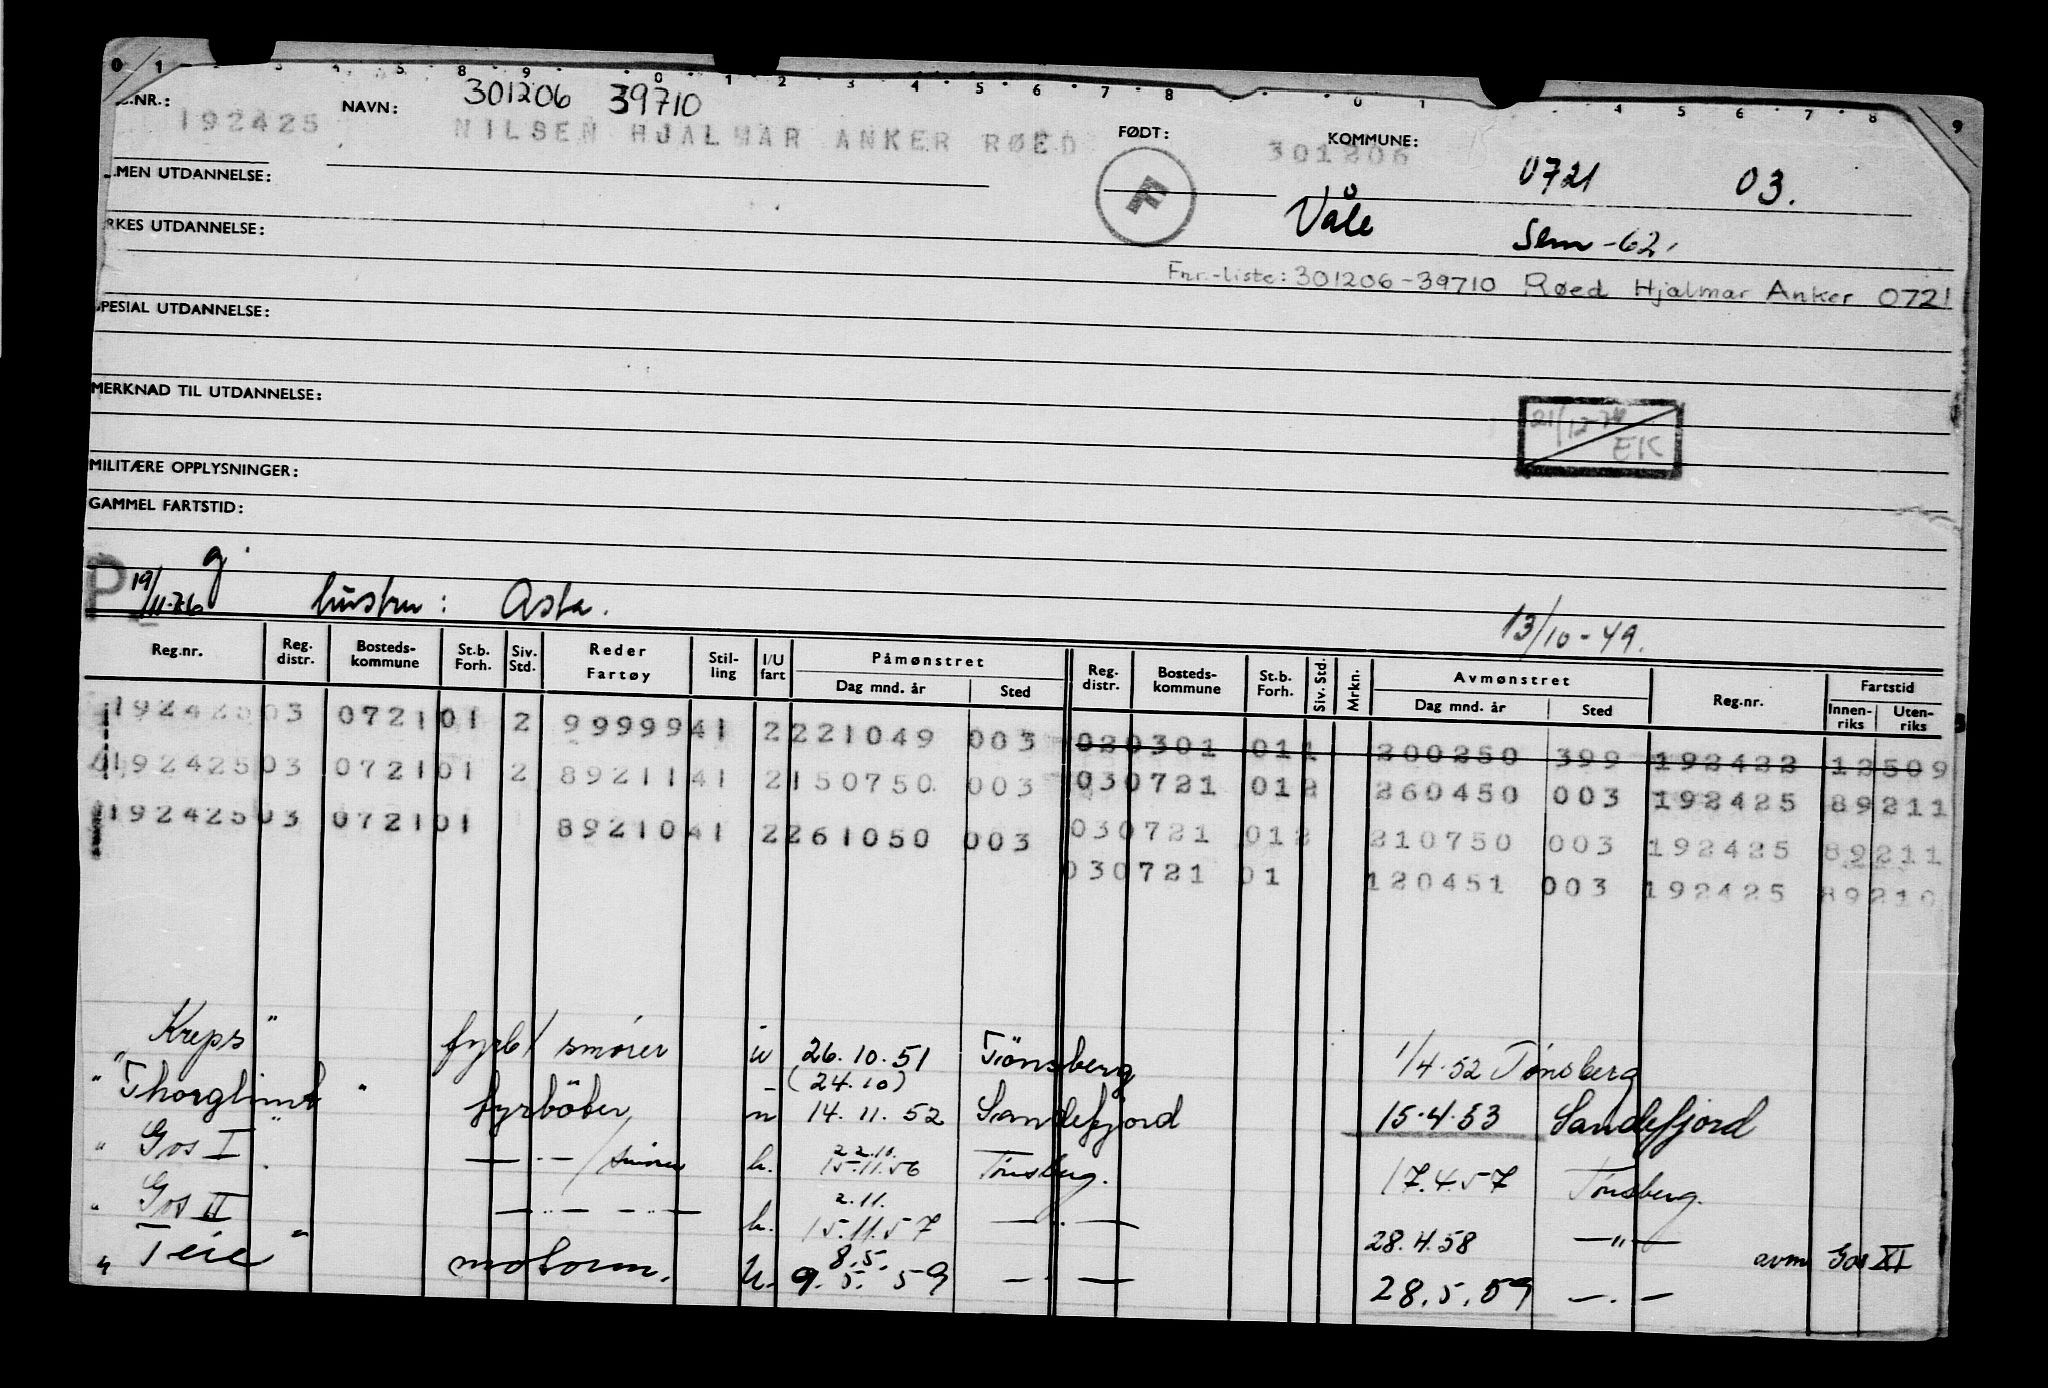 0 1 3 4 5 8 9 0 1 2 3 4 5 6 7 8 0 1 4 5 6 7 8 9
NR.: 192425 NAVN: 301206 39710 FØDT: KOMMUNE:
NILSEN HJALMAR ANKER RØED 301206
0721 03.
MEN UTDANNELSE:
F
Våle Sem -62.
RKES UTDANNELSE:
Fnr.-liste: 301206-39710 Røed Hjalmar Anker 0721
PESIAL UTDANNELSE:
MERKNAD TIL UTDANNELSE:
21/12-74 EK
MILITÆRE OPPLYSNINGER:
GAMMEL FARTSTID:
P 19/11-76 g. hustru: Asta. 13/10-49.
Reg.nr. Reg. distr. Bosteds-kommune St.b. Forh. Siv. Std. Reder Fartøy Stil-ling I/U fart Påmønstret Dag mnd. år Sted Reg. distr. Bosteds-kommune St.b. Forh. Siv. Std. Mrkn. Avmønstret Dag mnd. år Sted Reg.nr. Fartstid Innen-riks Uten-riks
192425 03 0721 01 2 99999 41 2 221049 003 020301 011 200250 399 192422 12509
192425 03 0721 01 2 89211 41 2 150750 003 030721 012 260450 003 192425 89211
192425 03 0721 01 89210 41 2 261050 003 030721 012 210750 003 192425 89211
030721 01 120451 003 192425 89210
" Kreps " fyrb/smører u 26.10.51 Tönsberg 1/4.52 Tønsberg
(24.10)
" Thorglimt " fyrböter, n 14.11.52 Sandefjord 15.4.53 Sandefjord
22.10.
" Gos I " — " — /smører h. 15.11.56 Tønsberg. 17.4.57 Tønsberg.
2.11.
" Gos II — " — — " — h. 15.11.57 — " — 28.4.58 — " — avm Gos XI
8.5.
" Teie " motorm. U. 9.5.59 — " — 28.5.59 — " —